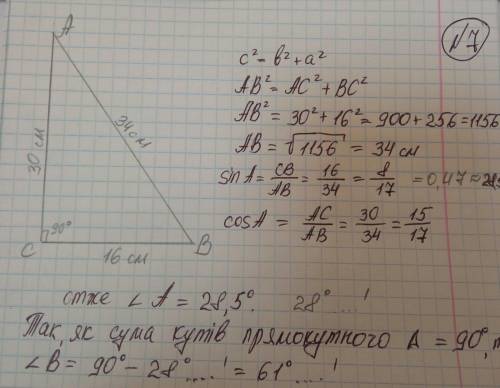 №7
A
30 см
34см
C
90°
16 см
B
c² = b² + a²
AB² = AC² + BC²
AB² = 30² + 16² = 900 + 256 = 1156
AB = √1156 = 34 см
sin A = CB/AB = 16/34 = 8/17 = 0,47 ≈
cos A = AC/AB = 30/34 = 15/17
отже ∠A = 28,5° 28° ....'
Так, як сума кутів прямокутного Δ = 90°,
∠B = 90° - 28° ....' = 61° ....'